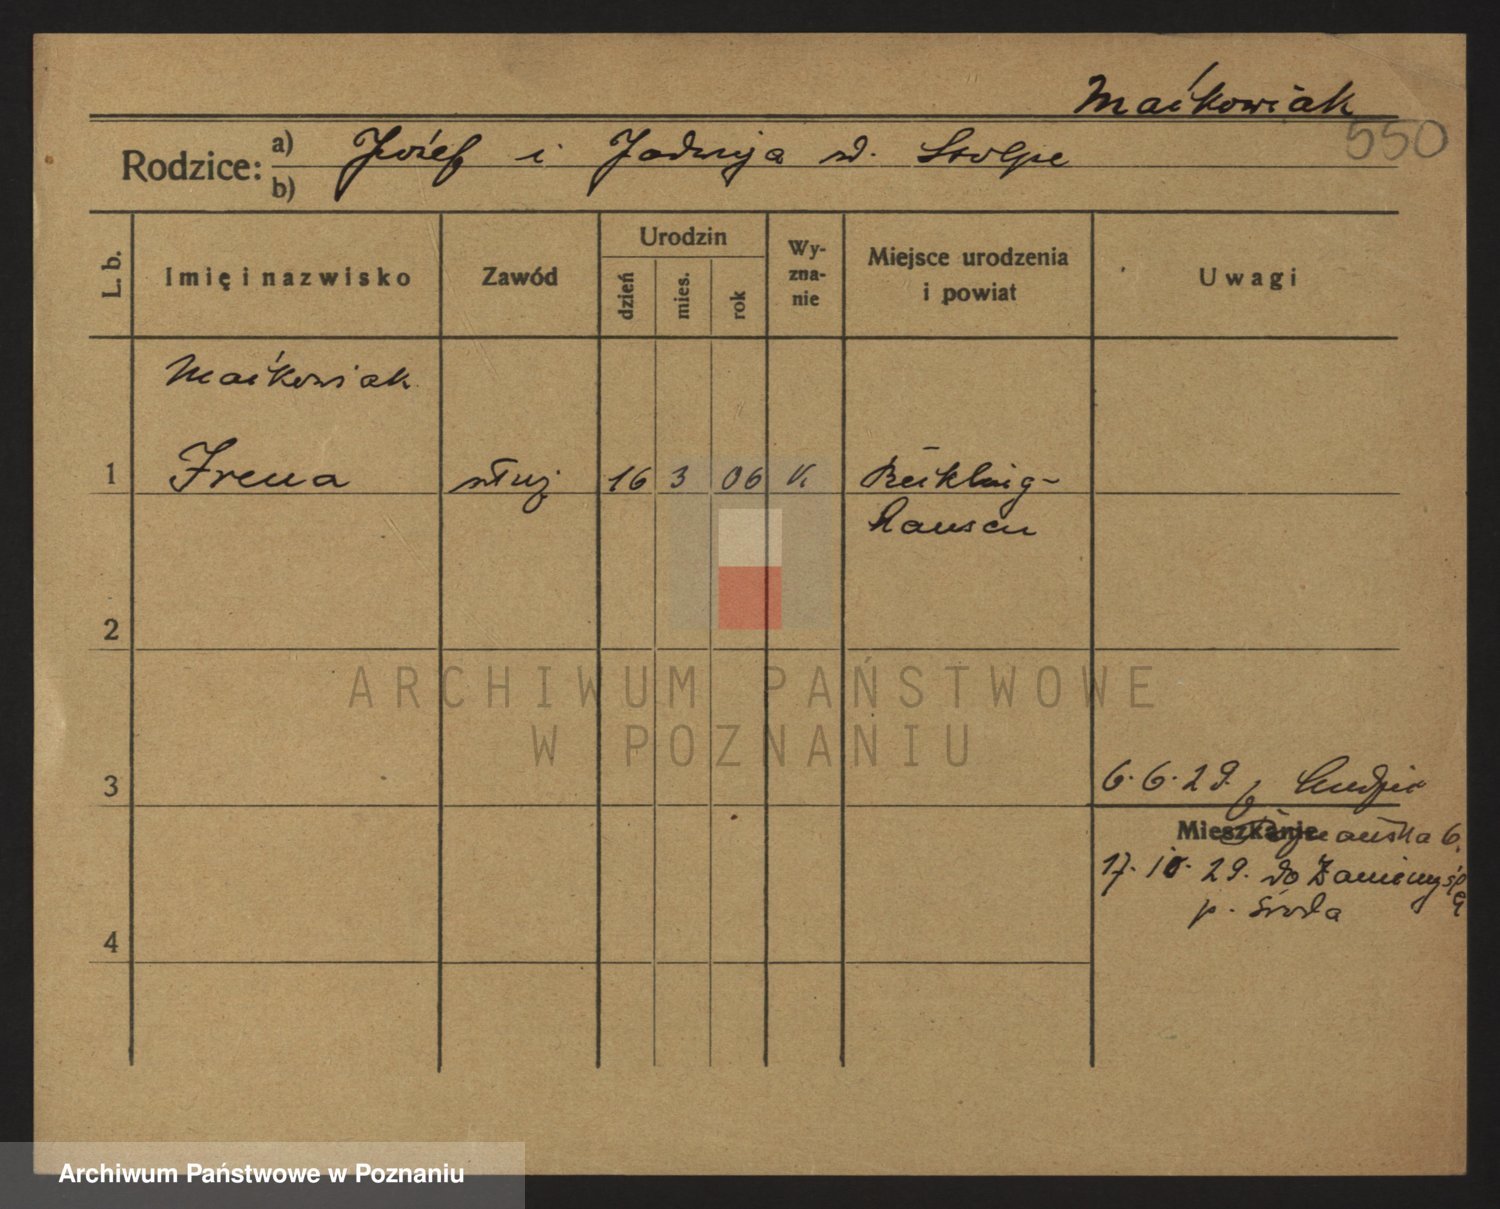 Maćkowiak
550
Rodzice: a) Józef i Jadwiga d. Stolpe
b)
L. b.
Imię i nazwisko
Zawód
Urodzin
dzień
mies.
rok
Wy-
zna-
nie
Miejsce urodzenia
i powiat
Uwagi
Maćkowiak
1 Irena służ 16 3 06 K. Reckling-
hausen
2
ARCHIWUM PAŃSTWOWE
W POZNANIU
3
6.6.29. z
Mieszkanie
Poznańska 6.
17.10.29. do Zaniemyśla
p. Środa
4
Archiwum Państwowe w Poznaniu